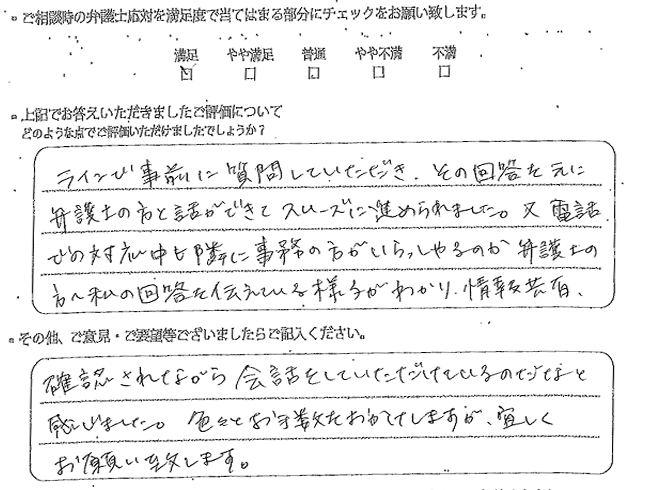 。ご相談時の弁護士応対を満足度で当てはまる部分にチェックをお願い致します。
満足 やや満足 普通 やや不満 不満
。上記でお答えいただきましたご評価について
どのような点でご評価いただけましたでしょうか？
ラインで事前に質問していただき、その回答を元に
弁護士の方と話ができてスムーズに進められました。又電話
での対応中も隣に事務の方がいらっしゃるのか弁護士の
方へ私の回答を伝えている様子がわかり、情報共有、
。その他、ご意見・ご要望等ございましたらご記入ください。
確認されながら会話をしていただけているのだなと
感じました。色々とお手数をおかけしますが、宜しく
お願い致します。